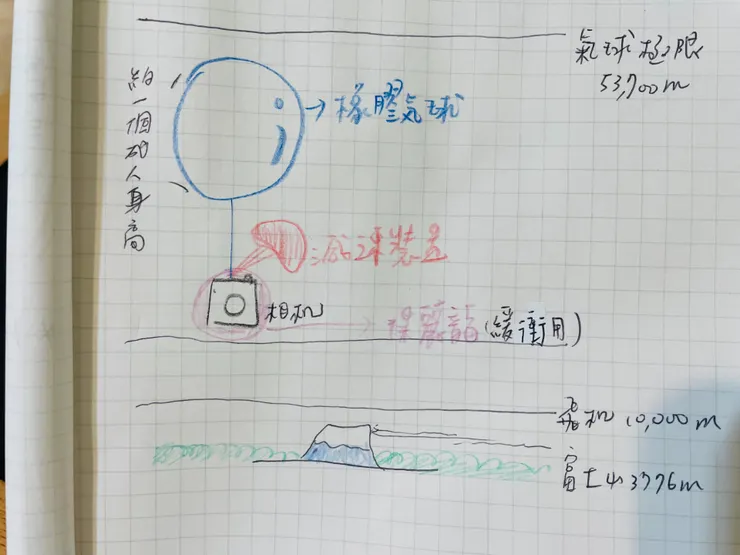 氣球極限
53,700m
約一個成人身高
橡膠氣球
減速裝置
相机
保麗龍(緩衝用)
飛机 10,000m
富士山 3776m